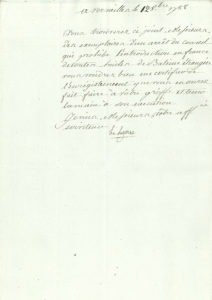 a Versailles le 12 8bre 1788
Vous trouverez cy joint, Messieurs,
des exemplaires d'un arrêt du conseil
qui prohibe l'introduction en france
de toutes huiles de Baleine étrangere
vous voudrez bien me certifier de
l'enregistrement que vous en aurez
fait faire à votre greffe et tenir
la main à son execution.
Je suis, Messieurs, votre aff.
serviteur